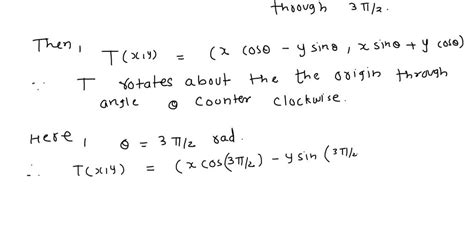 through 3π/2.
Then, T(x,y) = (x cosθ - y sinθ, x sinθ + y cosθ)
∵ T rotates about the the origin through
angle θ counter clockwise.
Here, θ = 3π/2 rad.
∴ T(x,y) = (x cos(3π/2) - y sin (3π/2